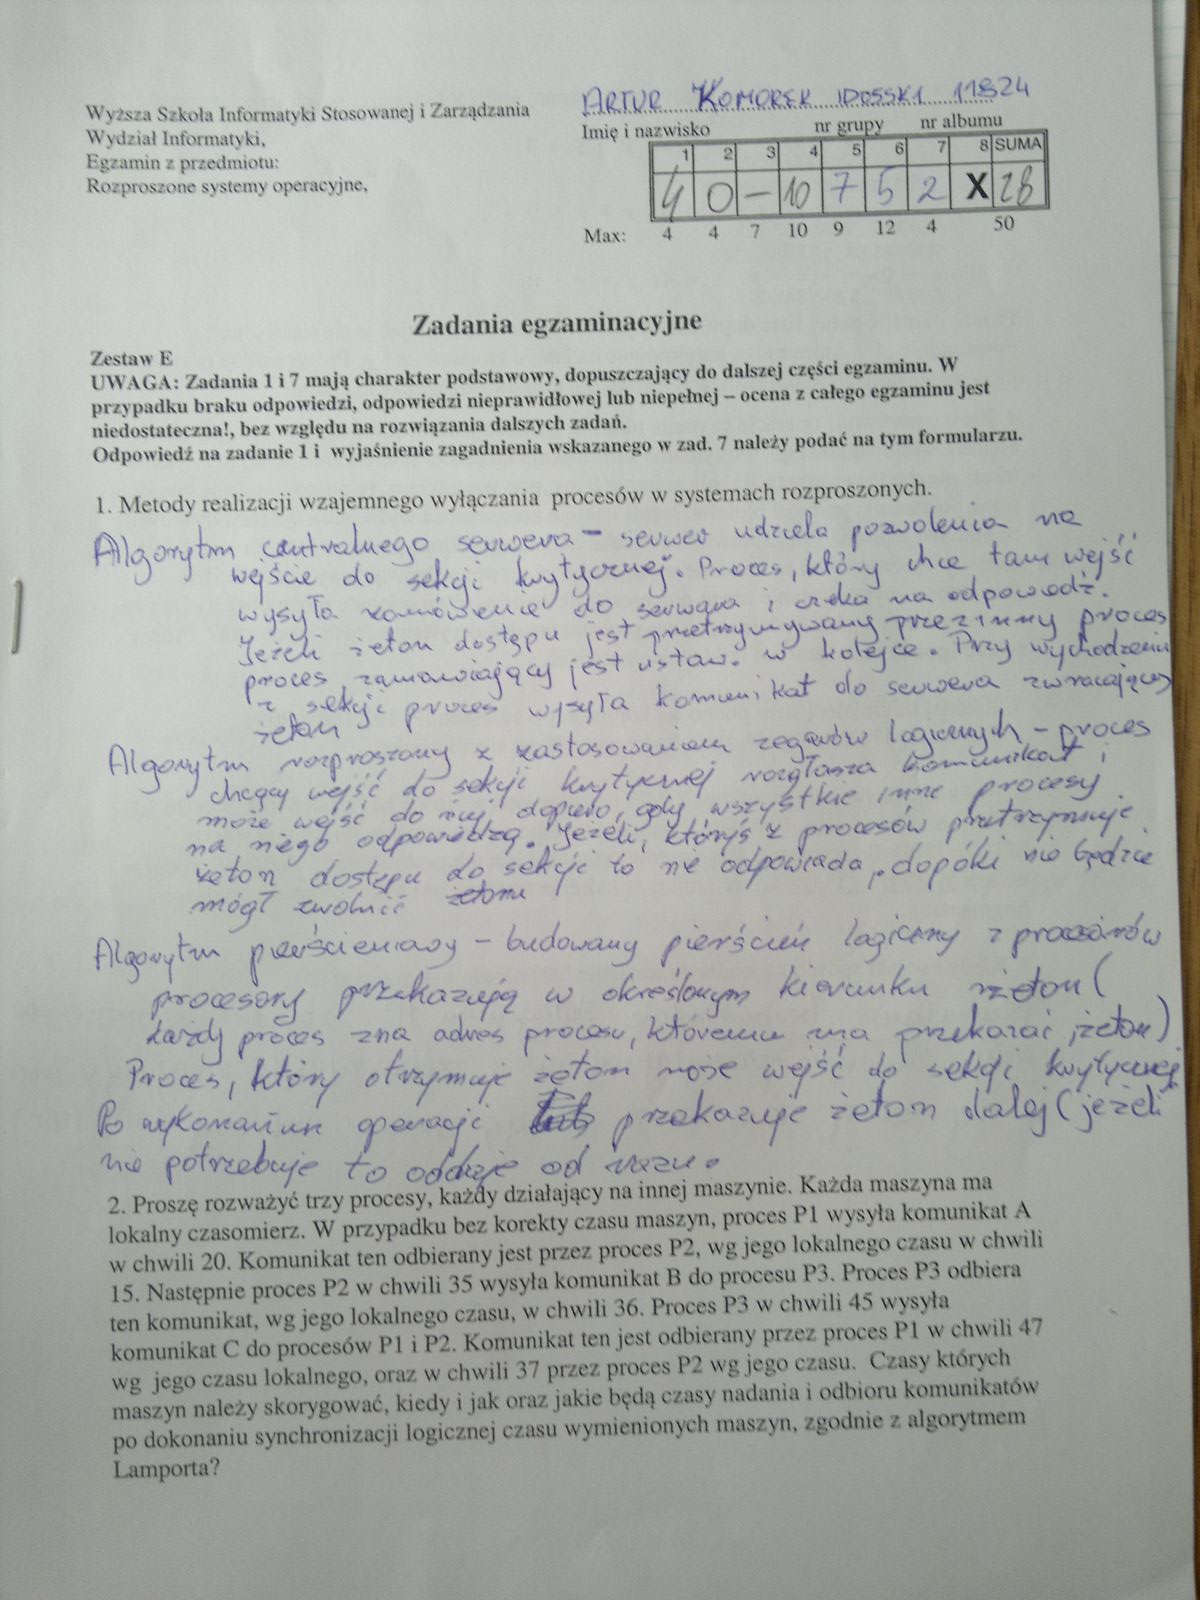 Wyższa Szkoła Informatyki Stosowanej i Zarządzania
Wydział Informatyki,
Egzamin z przedmiotu:
Rozproszone systemy operacyjne,
ARTUR KOMOREK ID055K1 11824
Imię i nazwisko nr grupy nr albumu
1 2 3 4 5 6 7 8 SUMA
4 0 – 10 7 5 2 X 28
Max: 4 4 7 10 9 12 4 50
Zadania egzaminacyjne
Zestaw E
UWAGA: Zadania 1 i 7 mają charakter podstawowy, dopuszczający do dalszej części egzaminu. W
przypadku braku odpowiedzi, odpowiedzi nieprawidłowej lub niepełnej – ocena z całego egzaminu jest
niedostateczna!, bez względu na rozwiązania dalszych zadań.
Odpowiedź na zadanie 1 i wyjaśnienie zagadnienia wskazanego w zad. 7 należy podać na tym formularzu.
1. Metody realizacji wzajemnego wyłączania procesów w systemach rozproszonych.
Algorytm centralnego serwera – serwer udziela pozwolenia na
wejście do sekcji krytycznej. Proces, który chce tam wejść
wysyła zamówienie do serwera i czeka na odpowiedź.
Jeżeli żeton dostępu jest przetrzymywany przez inny proces
proces zamawiający jest ustaw. w kolejce. Przy wychodzeniu
z sekcji proces wysyła komunikat do serwera zwracający
żeton
Algorytm rozproszony z zastosowaniem zegarów logicznych – proces
chcący wejść do sekcji krytycznej rozgłasza komunikat i
może wejść do niej dopiero, gdy wszystkie inne procesy
na niego odpowiedzą. Jeżeli, któryś z procesów przetrzymuje
żeton dostępu do sekcji to nie odpowiada, dopóki nie będzie
mógł zwolnić żetonu
Algorytm pierścieniowy – budowany pierścień logiczny z procesorów
procesory przekazują w określonym kierunku żeton (
każdy proces zna adres procesu, któremu ma przekazać żeton)
Proces, który otrzymuje żeton może wejść do sekcji krytycznej
Po wykonaniu operacji przekazuje żeton dalej (jeżeli
nie potrzebuje to oddaje od razu.
2. Proszę rozważyć trzy procesy, każdy działający na innej maszynie. Każda maszyna ma
lokalny czasomierz. W przypadku bez korekty czasu maszyn, proces P1 wysyła komunikat A
w chwili 20. Komunikat ten odbierany jest przez proces P2, wg jego lokalnego czasu w chwili
15. Następnie proces P2 w chwili 35 wysyła komunikat B do procesu P3. Proces P3 odbiera
ten komunikat, wg jego lokalnego czasu, w chwili 36. Proces P3 w chwili 45 wysyła
komunikat C do procesów P1 i P2. Komunikat ten jest odbierany przez proces P1 w chwili 47
wg jego czasu lokalnego, oraz w chwili 37 przez proces P2 wg jego czasu. Czasy których
maszyn należy skorygować, kiedy i jak oraz jakie będą czasy nadania i odbioru komunikatów
po dokonaniu synchronizacji logicznej czasu wymienionych maszyn, zgodnie z algorytmem
Lamporta?